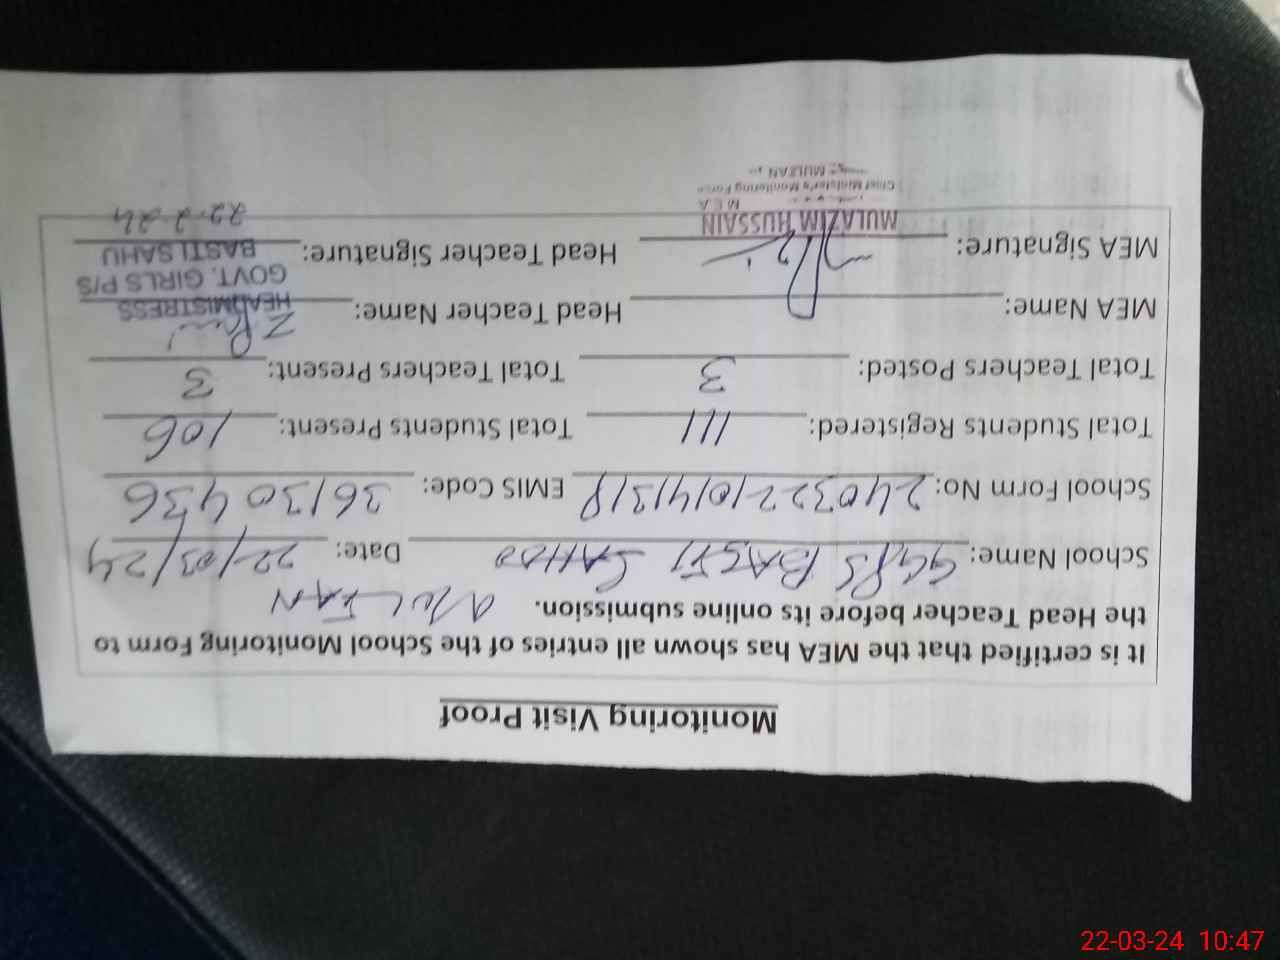 Monitoring Visit Proof
It is certified that the MEA has shown all entries of the School Monitoring Form to
the Head Teacher before its online submission. MULTAN
School Name: GGPS BASTI SAHOO Date: 22/03/24
School Form No: 24032210141318 EMIS Code: 36130436
Total Students Registered: 111 Total Students Present: 106
Total Teachers Posted: 3 Total Teachers Present: 3
MEA Name: Head Teacher Name:
HEADMISTRESS
GOVT. GIRLS P/S
BASTI SAHU
MEA Signature: Head Teacher Signature:
MULAZIM HUSSAIN
M.E.A
Chief Minister's Monitoring Force
22-03-24 10:47